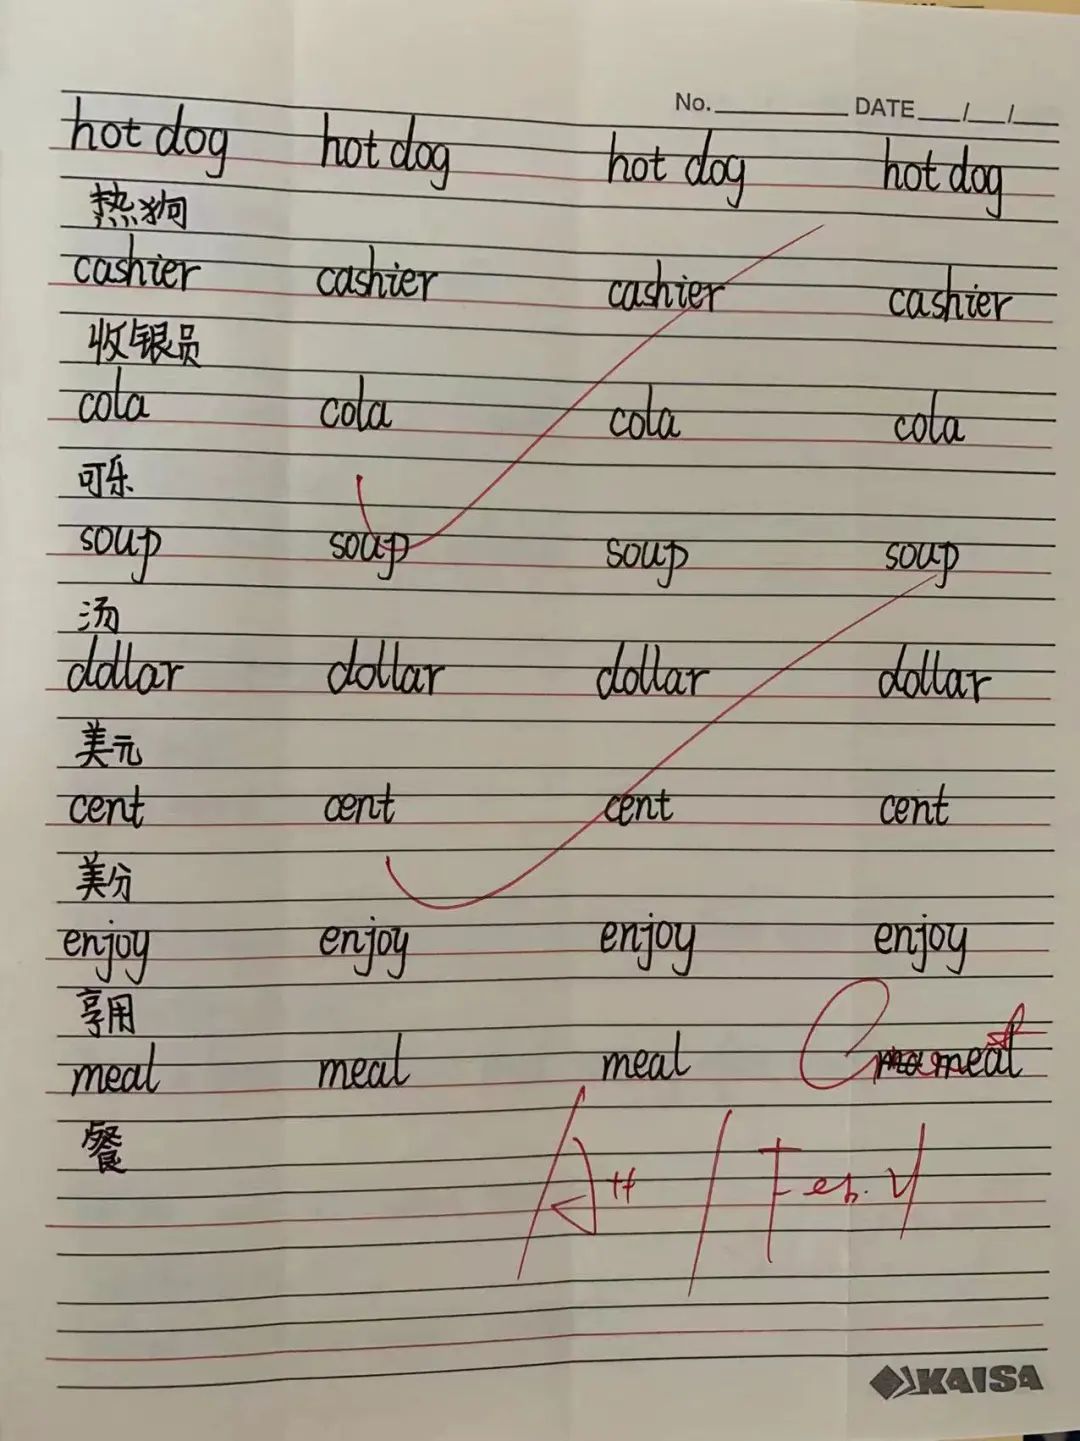 No. DATE / /
hot dog hot dog hot dog hot dog
热狗
cashier cashier cashier cashier
收银员
cola cola cola cola
可乐
soup soup soup soup
汤
dollar dollar dollar dollar
美元
cent cent cent cent
美分
enjoy enjoy enjoy enjoy
享用
meal meal meal meal
餐
A++ Feb.
KAISA